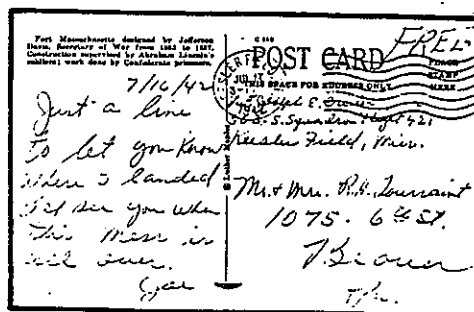 Fort Massachusetts designed by Jefferson
Davis, Secretary of War from 1853 to 1857.
Construction supervised by Abraham Lincoln's
soldiers; work done by Confederate prisoners.
7/16/42
Just a line
to let you know
where I landed
I'll see you when
this mess is
all over.
Joe
FREE
POST CARD
PLACE
STAMP
HERE
THIS SPACE FOR ADDRESS ONLY
Joseph E.
S. Squadron Flight 421
Keesler Field, Miss.
Mr. & Mrs. R.H. Toussaint
1075 - 6th St.